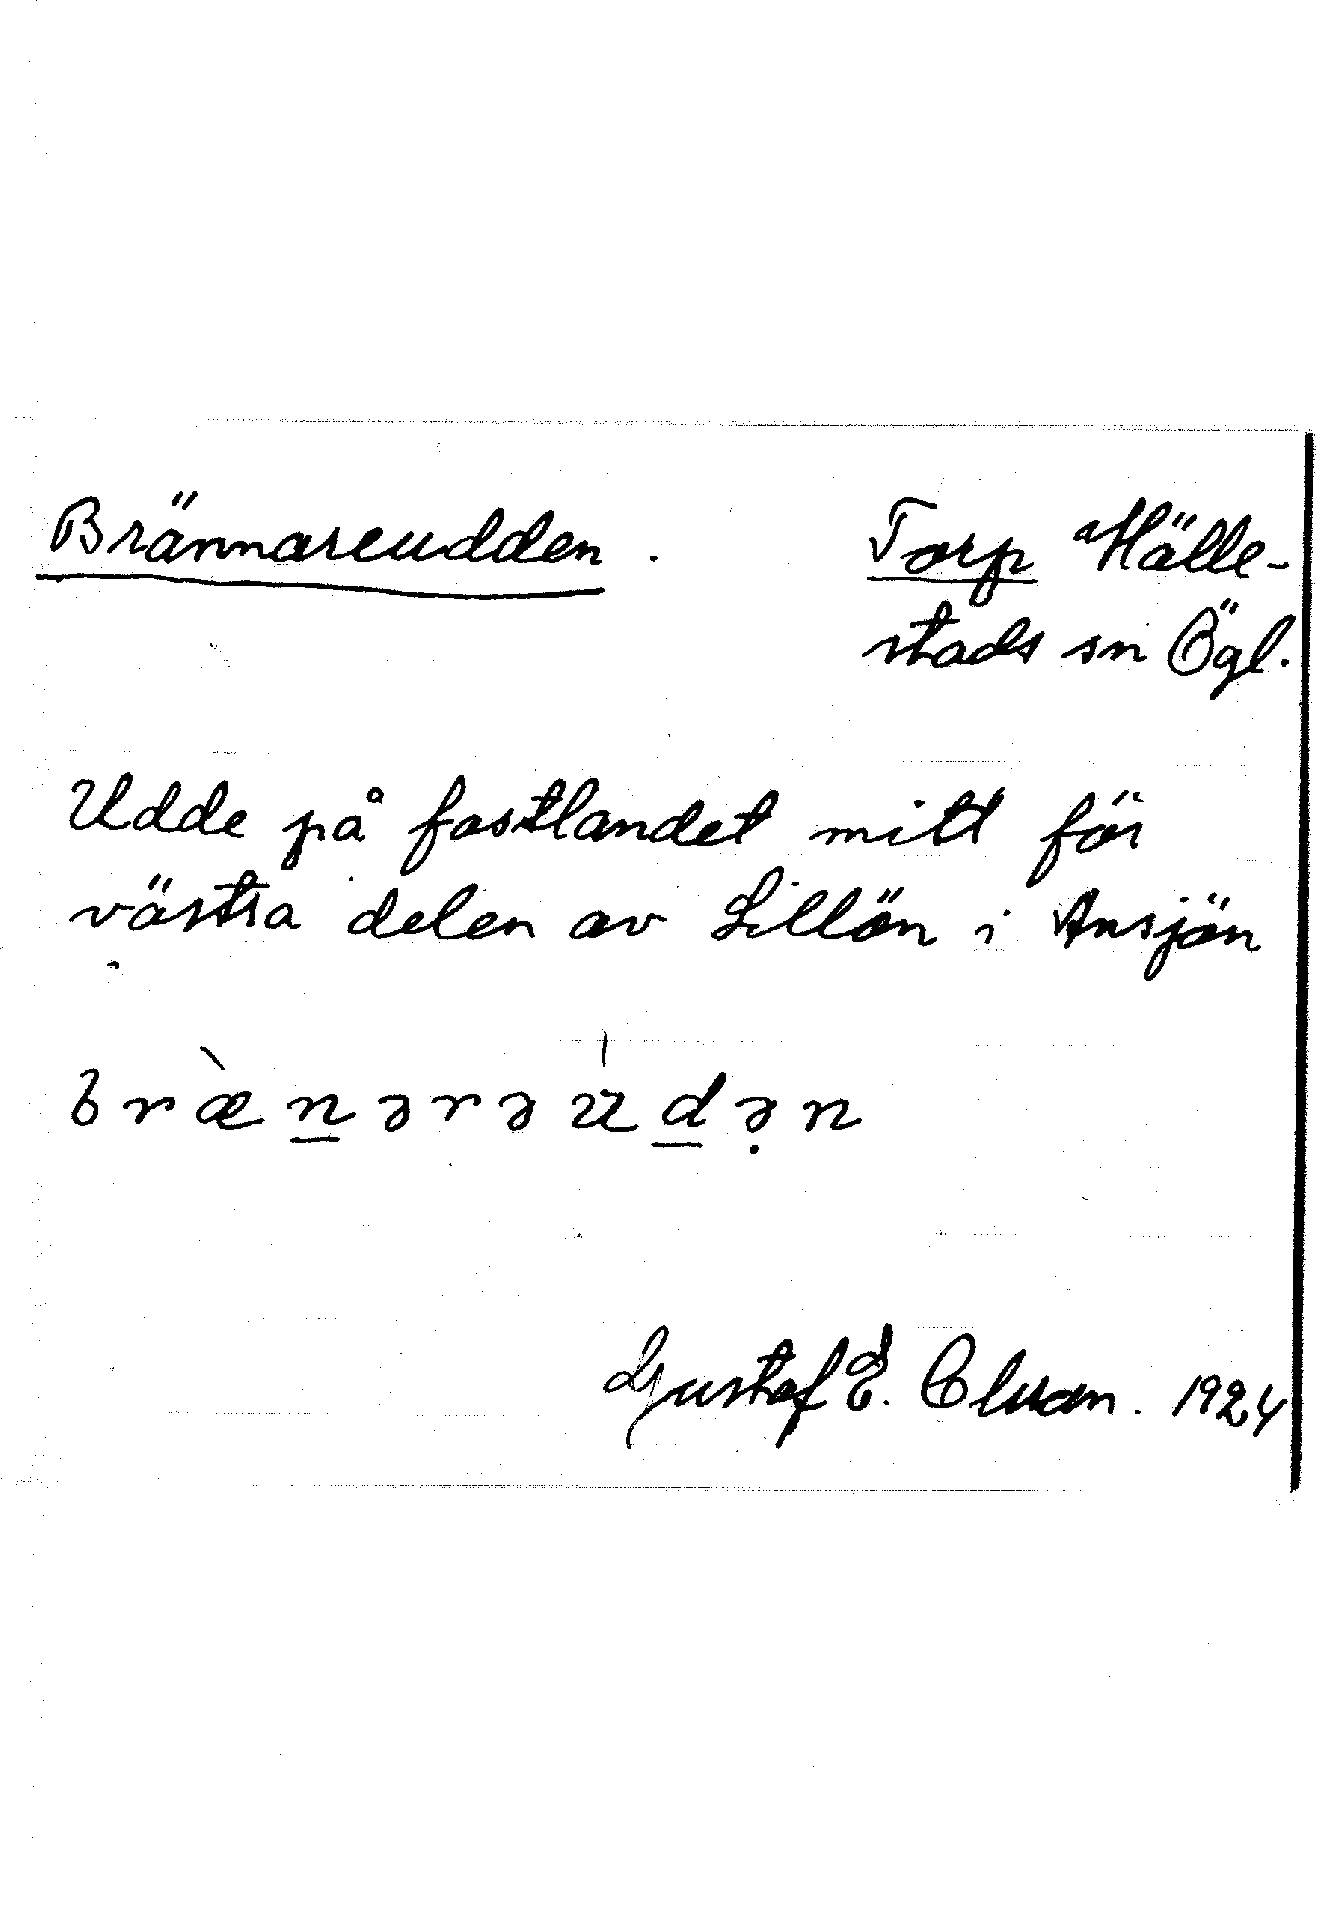 Brännareudden. Torp Hälle-
stads sn Ögl.
Udde på fastlandet mitt för
västra delen av Lillön i Ansjön
bræ̀n̲ərəu̍d̲ə̣n
Gustaf E. 1924